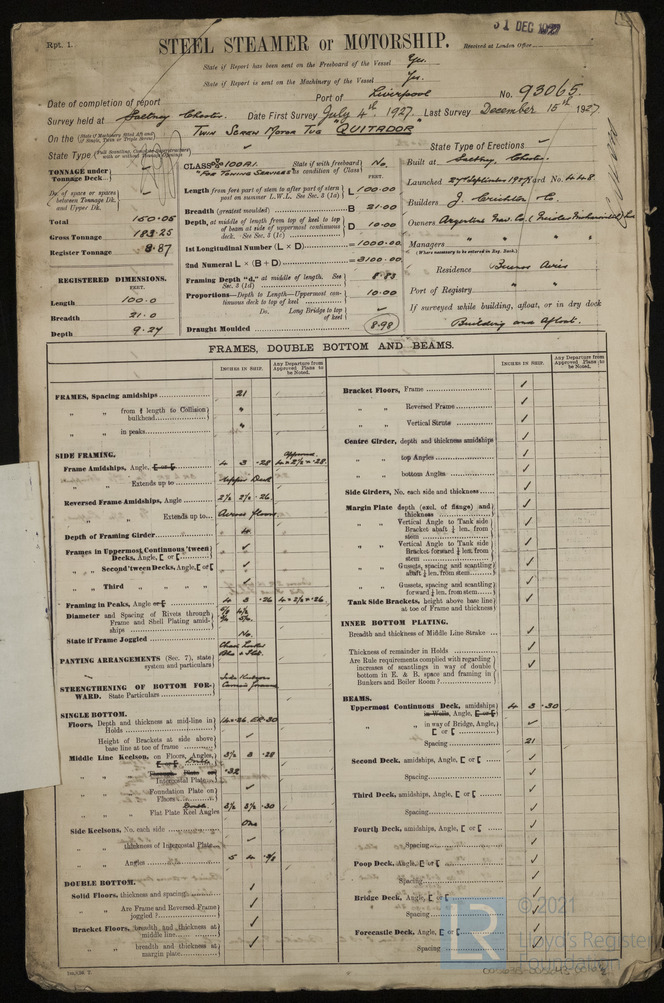 31 DEC 1927
Rpt. 1.
STEEL STEAMER or MOTORSHIP.
Received at London Office
State if Report has been sent on the Freeboard of the Vessel Yes.
State if Report is sent on the Machinery of the Vessel Yes.
Date of completion of report
Port of Liverpool
No. 93065.
Survey held at Saltney Chester.
Date First Survey July 4th 1927. Last Survey December 15th 1927
On the (State if Machinery fitted Aft and if Single, Twin or Triple Screw) TWIN SCREW MOTOR TUG "QUITADOR"
State Type
State Type of Erections ✓
TONNAGE under Tonnage Deck
Do. of space or spaces between Tonnage Dk. and Upper Dk.
Total 150.05
Gross Tonnage 183.25
Register Tonnage 3.87
REGISTERED DIMENSIONS.
FEET.
Length 100.0
Breadth 21.0
Depth 9.27
CLASS 100A1. State if with freeboard as condition of Class No.
"FOR TOWING SERVICES"
FEET.
Length from fore part of stem to after part of stern post on summer L.W.L. See Sec. 3 (1a) L 100.00
Breadth (greatest moulded) B 21.00
Depth, at middle of length from top of keel to top of beam at side of uppermost continuous deck. See Sec. 3 (1c) D 10.00
1st Longitudinal Number (L × D) = 1000.00
2nd Numeral L × (B + D) = 3100.00
Framing Depth "d," at middle of length. See Sec. 3 (1d) 8.83
Proportions—Depth to Length—Uppermost continuous deck to top of keel 10.00
Do. Long Bridge to top of keel ✓
Draught Moulded 8.98
Built at Saltney, Chester.
Launched 27 September 1927 Yard No. 448
Builders J. Crichton Co.
Owners Argentine Nav. Co.
Managers " " "
(Where necessary to be entered in Reg. Book.)
Residence Buenos Aires
Port of Registry " "
If surveyed while building, afloat, or in dry dock
Building and Afloat.
FRAMES, DOUBLE BOTTOM AND BEAMS.
INCHES IN SHIP.
Any Departure from Approved Plans to be Noted.
INCHES IN SHIP.
Any Departure from Approved Plans to be Noted.
FRAMES, Spacing amidships 21
" " from ⅕ length to Collision bulkhead "
" " in peaks "
SIDE FRAMING.
Frame Amidships, Angle, 4 3 .28 Approved 4 × 2½ × .28
" " Extends up to Upper Deck
Reversed Frame Amidships, Angle 2½ 2½ .26
" " " Extends up to Across floors
Depth of Framing Girder 4
Frames in Uppermost Continuous 'tween Decks, Angle, [ or [ ✓
" " Second 'tween Decks, Angle, [ or [ ✓
" " Third " " " ✓
Framing in Peaks, Angle 4 3 .26 4 × 2½ × .26
Diameter and Spacing of Rivets through Frame and Shell Plating amidships
State if Frame Joggled No.
PANTING ARRANGEMENTS (Sec. 7), state system and particulars
STRENGTHENING OF BOTTOM FORWARD. State Particulars
SINGLE BOTTOM.
Floors, Depth and thickness at mid-line in Holds
Height of Brackets at side above base line at toe of frame ✓
Middle Line Keelson, on Floors, Angles, Double 3½ 3 .28
" " Intercostal Plate .32
" " Foundation Plate on Floors ✓
" " Flat Plate Keel Angles Double 3½ 3½ .30
Side Keelsons, No. each side One
" " thickness of Intercostal Plate ✓
" " Angles
DOUBLE BOTTOM.
Solid Floors, thickness and spacing ✓
" " Are Frame and Reversed Frame joggled? ✓
Bracket Floors, breadth and thickness at middle line ✓
" " breadth and thickness at margin plate ✓
Bracket Floors, Frame ✓
" " Reversed Frame ✓
" " Vertical Struts ✓
Centre Girder, depth and thickness amidships ✓
" " top Angles ✓
" " bottom Angles ✓
Side Girders, No. each side and thickness ✓
Margin Plate depth (excl. of flange) and thickness ✓
" " Vertical Angle to Tank side Bracket abaft ¼ len. from stem ✓
" " Vertical Angle to Tank side Bracket forward ¼ len. from stem ✓
" " Gussets, spacing and scantling abaft ¼ len. from stem ✓
" " Gussets, spacing and scantling forward ¼ len. from stem ✓
Tank Side Brackets, height above base line at toe of Frame and thickness ✓
INNER BOTTOM PLATING.
Breadth and thickness of Middle Line Strake ✓
Thickness of remainder in Holds ✓
Are Rule requirements complied with regarding increases of scantlings in way of double bottom in E. & B. space and framing in Bunkers and Boiler Room? ✓
BEAMS.
Uppermost Continuous Deck, amidships in Wells, Angle, [ or [ 4 3 .30
" " in way of Bridge, Angle, [ or [ ✓
Spacing 21
Second Deck, amidships, Angle, [ or [ ✓
Spacing ✓
Third Deck, amidships, Angle, [ or [ ✓
Spacing ✓
Fourth Deck, amidships, Angle, [ or [ ✓
Spacing ✓
Poop Deck, Angle, [ or [ ✓
Spacing ✓
Bridge Deck, Angle, [ or [ ✓
Spacing ✓
Forecastle Deck, Angle, [ or [ ✓
Spacing ✓
LR
© 2021
Lloyd's Register
Foundation